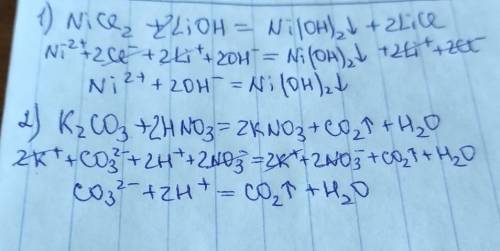 1) NiCl₂ + 2LiOH = Ni(OH)₂↓ + 2LiCl
Ni²⁺ + 2Cl⁻ + 2Li⁺ + 2OH⁻ = Ni(OH)₂↓ + 2Li⁺ + 2Cl⁻
Ni²⁺ + 2OH⁻ = Ni(OH)₂↓
2) K₂CO₃ + 2HNO₃ = 2KNO₃ + CO₂↑ + H₂O
2K⁺ + CO₃²⁻ + 2H⁺ + 2NO₃⁻ = 2K⁺ + 2NO₃⁻ + CO₂↑ + H₂O
CO₃²⁻ + 2H⁺ = CO₂↑ + H₂O